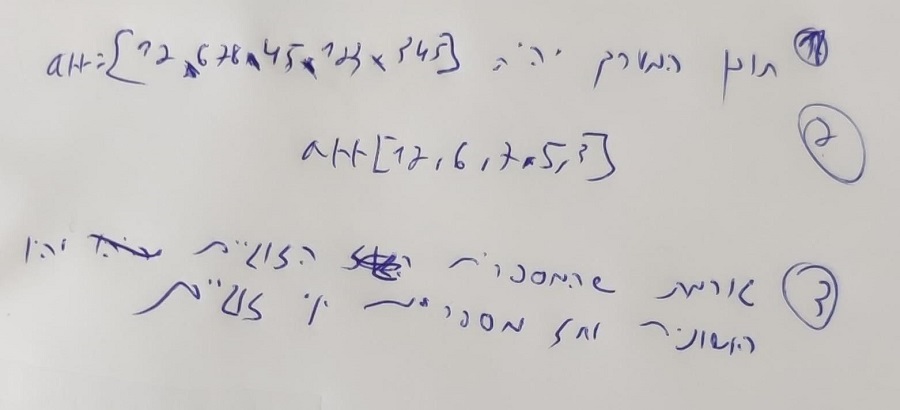 1 תוכן המערך יהיה arr:[12,678,45,123,345]
2 arr[12,6,7,5,3]
3 שהמספרים הזוגיים יהיו
ואז מספרים אי זוגיים